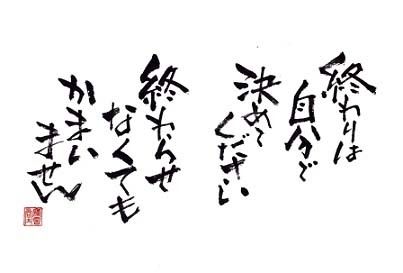 終わりは
自分で
決めて
ください
終わらせ
なくても
かまい
ません